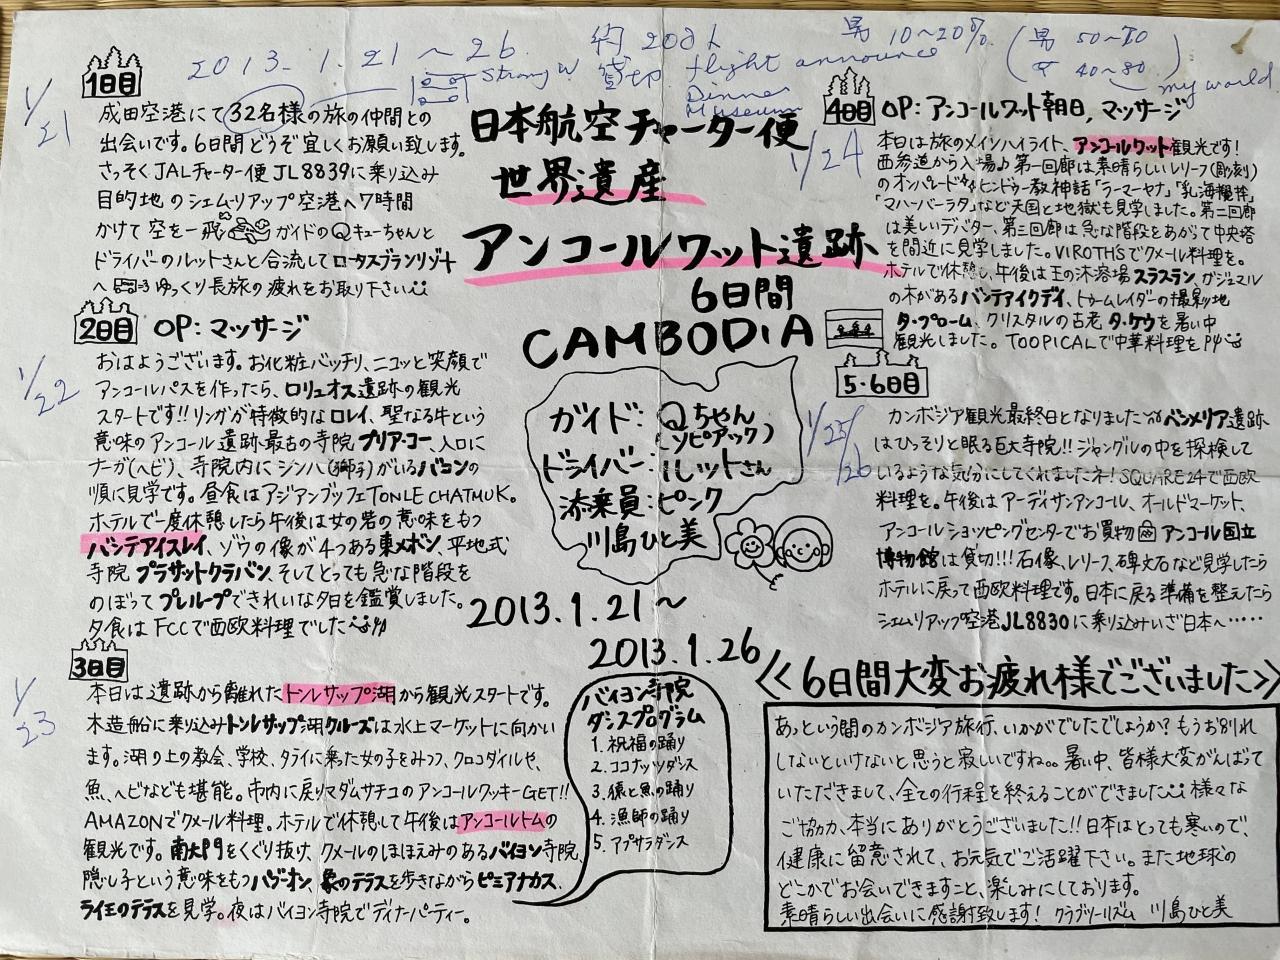 2013.1.21~26 約200人 男10~20% (男50~70
女40~80)
Strong W 貸切 flight announce
Dinner
Museum
my world
日本航空チャーター便
世界遺産
アンコールワット遺跡
6日間
CAMBODIA
ガイド:Qちゃん
(ソピアック)
ドライバー:ルットさん
添乗員:ピンク
川島ひと美
2013.1.21~
2013.1.26
1/21
1日目
成田空港にて32名様の旅の仲間との
出会いです。6日間どうぞ宜しくお願い致します。
さっそくJALチャーター便JL8839に乗り込み
目的地のシェムリアップ空港へ7時間
かけて空を一飛 ガイドのQキューちゃんと
ドライバーのルットさんと合流してロータスブランリゾート
へ ゆっくり長旅の疲れをお取り下さい
1/22
2日目 OP:マッサージ
おはようございます。お化粧バッチリ、ニコッと笑顔で
アンコールパスを作ったら、ロリュオス遺跡の観光
スタートです!!リンガが特徴的なロレイ、聖なる牛という
意味のアンコール遺跡最古の寺院プリア・コー、入口に
ナーガ(ヘビ)、寺院内にシンハ(獅子)がいるバコンの
順に見学です。昼食はアジアンブッフェTONLE CHATMUK。
ホテルで一度休憩したら午後は女の砦の意味をもつ
バンテアイスレイ、ゾウの像が4つある東メボン、平地式
寺院プラサットクラバン、そしてとっても急な階段を
のぼってプレループできれいな夕日を鑑賞しました。
夕食はFCCで西欧料理でした
1/23
3日目
本日は遺跡から離れたトンレサップ湖から観光スタートです。
木造船に乗り込みトンレサップ湖クルーズは水上マーケットに向かい
ます。湖の上の教会、学校、タライに乗った女の子をみつつ、クロコダイルや、
魚、ヘビなども堪能。市内に戻りマダムサチコのアンコールクッキーGET!!
AMAZONでクメール料理。ホテルで休憩して午後はアンコールトムの
観光です。南大門をくぐり抜け、クメールのほほえみのあるバイヨン寺院、
隠し子という意味をもつパプーオン、象のテラスを歩きながらピミアナカス、
ライ王のテラスを見学。夜はバイヨン寺院でディナーパーティー。
バイヨン寺院
ダンスプログラム
1. 祝福の踊り
2. ココナッツダンス
3. 猿と魚の踊り
4. 漁師の踊り
5. アプサラダンス
1/24
4日目 OP:アンコールワット朝日、マッサージ
本日は旅のメインハイライト、アンコールワット観光です!
西参道から入場♪第一回廊は素晴らしいレリーフ(彫刻)
のオンパレード ヒンドゥー教神話「ラーマーヤナ」「乳海攪拌」
「マハーバーラタ」など天国と地獄も見学しました。第二回廊
は美しいデバター、第三回廊は急な階段をあがって中央塔
を間近に見学しました。VIROTHSでクメール料理を。
ホテルで休憩し、午後は王の沐浴場スラスラン、ガジュマル
の木があるバンテアイクデイ、トゥームレイダーの撮影地
タ・プローム、クリスタルの古老タ・ケウを暑い中
観光しました。TOOPICALで中華料理を
1/25
26
5・6日目
カンボジア観光最終日となりました ベンメリア遺跡
はひっそりと眠る巨大寺院!!ジャングルの中を探検して
いるような気分にしてくれましたネ!SQUARE24で西欧
料理を。午後はアーティサンアンコール、オールドマーケット、
アンコールショッピングセンターでお買物 アンコール国立
博物館は貸切!!!石像、レリーフ、碑文石など見学したら
ホテルに戻って西欧料理です。日本に戻る準備を整えたら
シェムリアップ空港JL8830に乗り込みいざ日本へ……
≪6日間大変お疲れ様でございました≫
あっという間のカンボジア旅行、いかがでしたでしょうか?もうお別れ
しないといけないと思うと寂しいですね。。暑い中、皆様大変がんばって
いただきまして、全ての行程を終えることができました 様々な
ご協力、本当にありがとうございました!!日本はとっても寒いので、
健康に留意されて、お元気でご活躍下さい。また地球の
どこかでお会いできますこと、楽しみにしております。
素晴らしい出会いに感謝致します! クラブツーリズム 川島ひと美